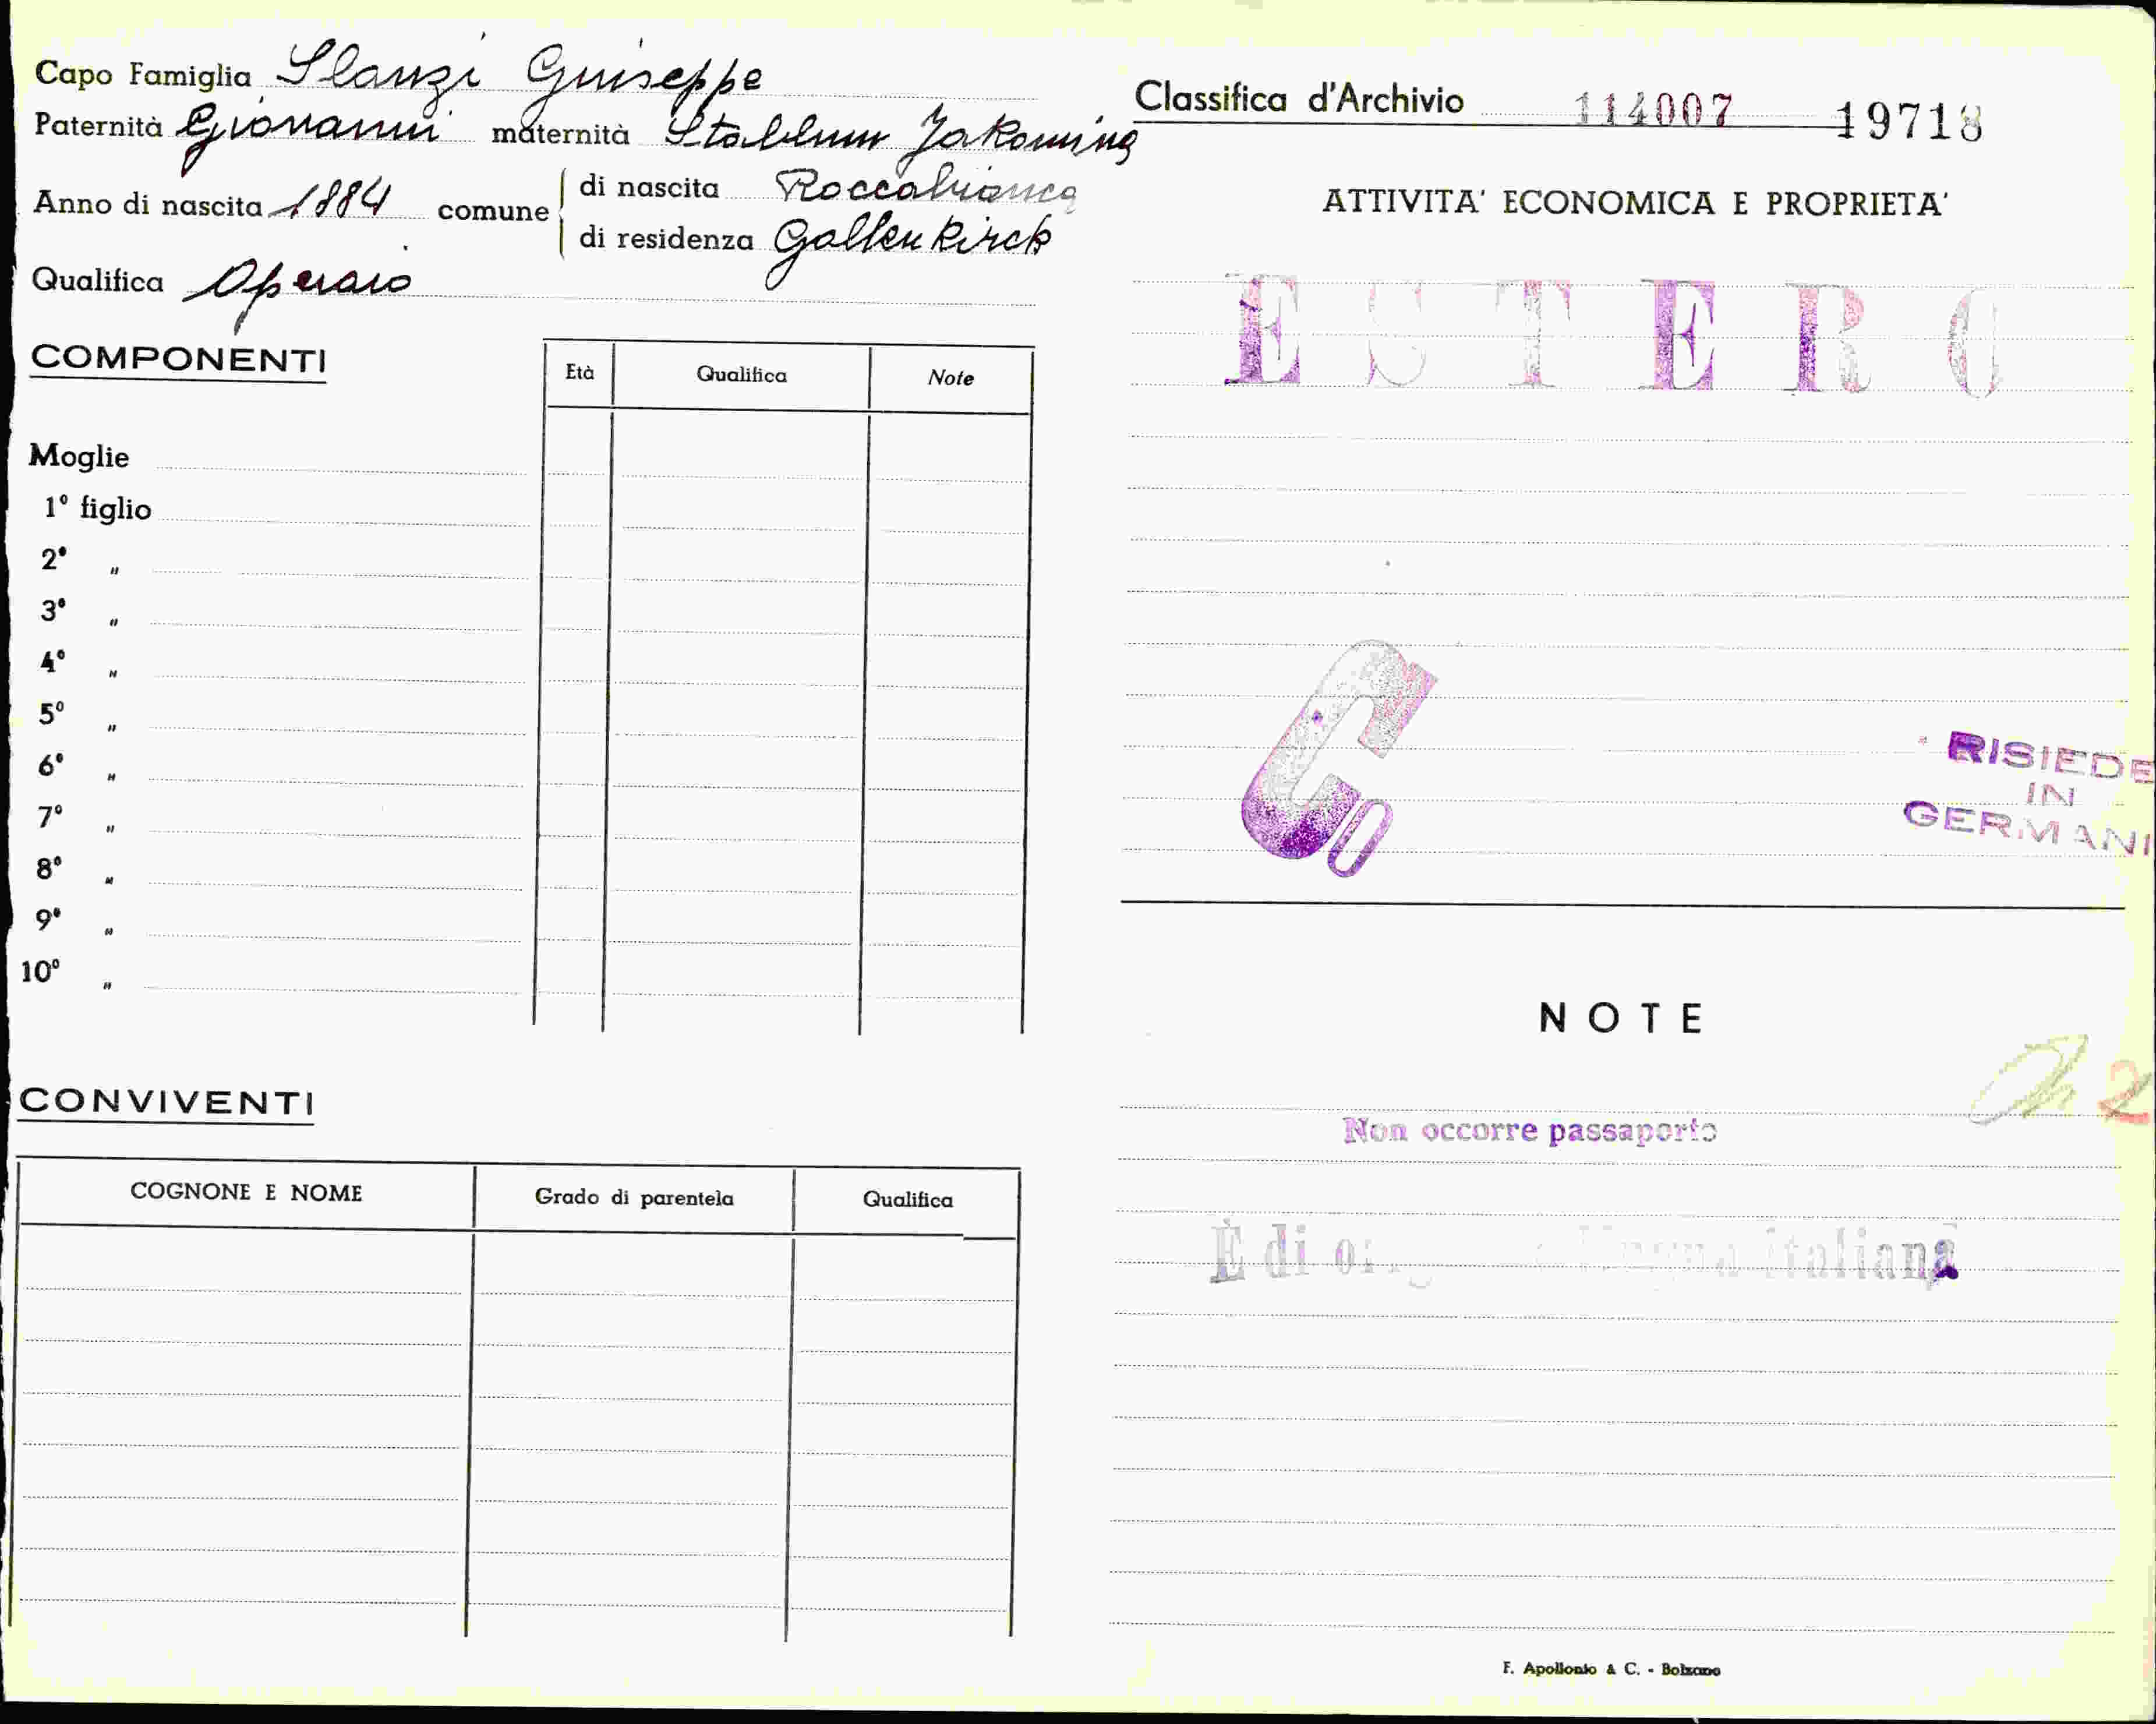 Capo Famiglia Slanzi Guiseppe
Paternità Giovanni maternità Stablum Jakomina
Anno di nascita 1884 comune di nascita Roccabianca
di residenza Gallenkirck
Qualifica Operaio
COMPONENTI
Età Qualifica Note
Moglie
1° figlio
2° "
3° "
4° "
5° "
6° "
7° "
8° "
9° "
10° "
CONVIVENTI
COGNONE E NOME Grado di parentela Qualifica
Classifica d'Archivio 114007 19718
ATTIVITA' ECONOMICA E PROPRIETA'
ESTERO
Co
RISIEDE
IN
GERMANI
NOTE
2
Non occorre passaporto
È di lingua italiana
F. Apollonio & C. - Bolzano